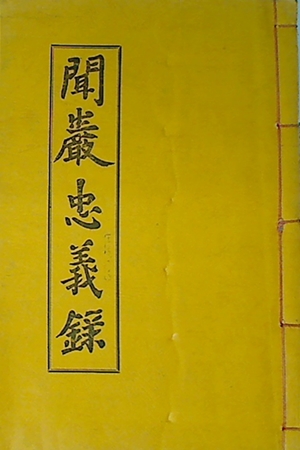 聞巖忠義錄